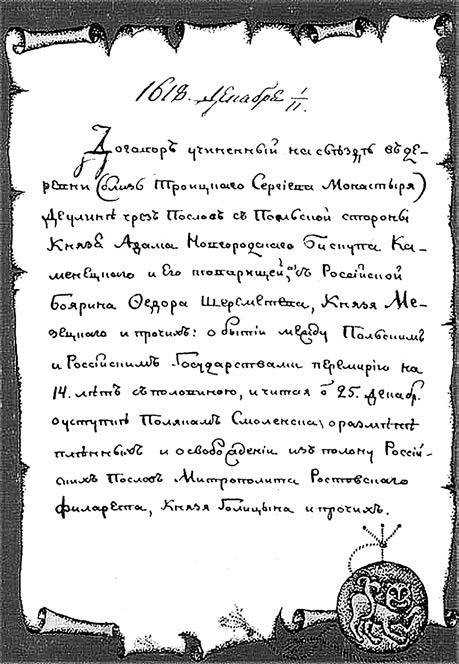 1618. Декабрѣ 1/11.
Договоръ учиненный на съѣздѣ въ де-
ревни (близь Троицкаго Сергіева Монастыря)
Деулинѣ чрезъ Пословъ съ Польской стороны
Князя Адама Новгородскаго Бискупа Ка-
менецкаго и его товарищей, а съ Россійской
Боярина Ѳедора Шереметева, Князя Ме-
зецкаго и прочихъ: о бытіи между Польскимъ
и Россійскимъ Государствами перемирію на
14. лѣтъ съ половиною, считая отъ 25. декабр.
о уступкѣ Полякамъ Смоленска, о размѣнѣ
плѣнныхъ и освобожденіи изъ полону Россій-
скихъ Пословъ Митрополита Ростовскаго
Филарета, Князя Голицына и прочихъ.